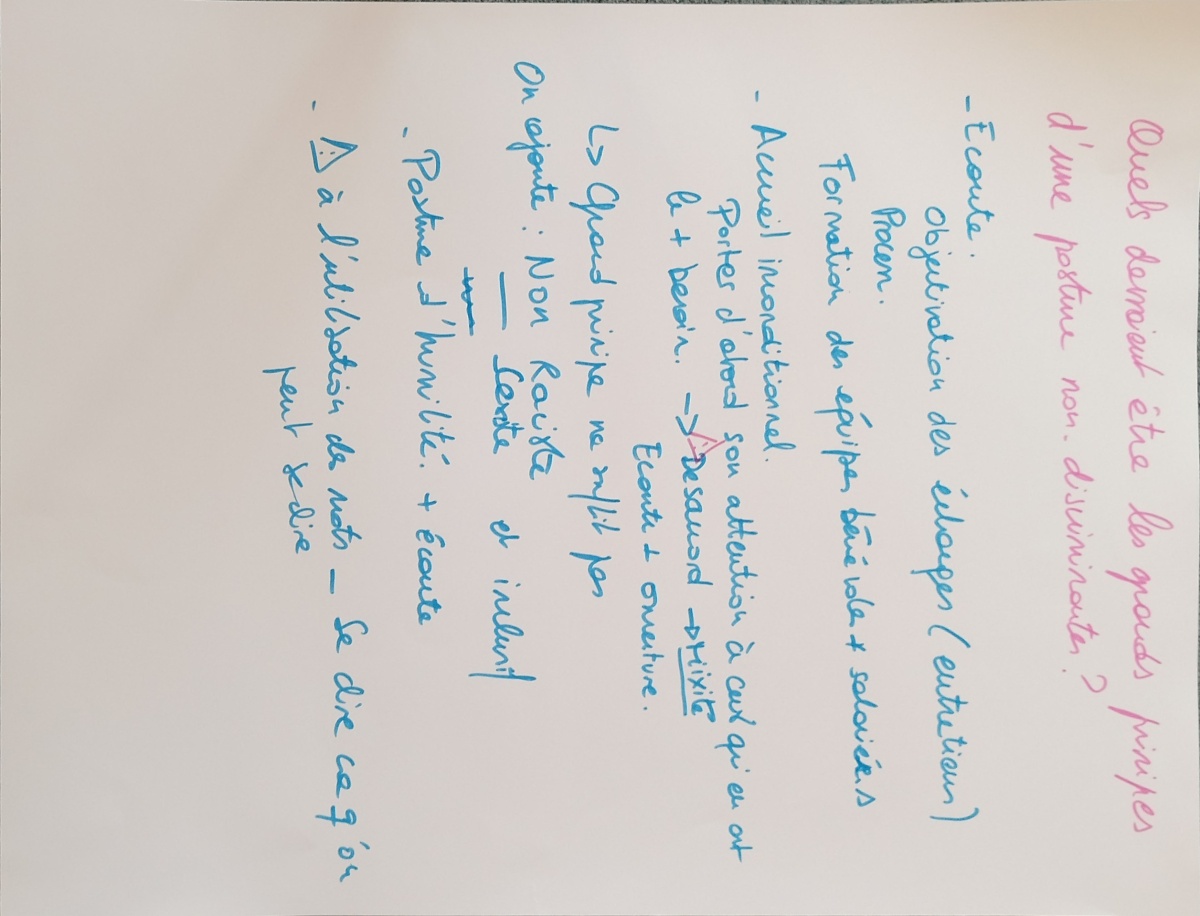 Quels devraient être les grands principes
d'une posture non-discriminantes?
- Ecoute.
Objectivation des échanges (entretiens)
Process.
Formation des équipes bénévoles + salariées
- Accueil inconditionnel.
Porter d'abord son attention à ceux qui en ont
le + besoin. -> ⚠ Desaccord -> Mixité
Ecoute + ouverture.
↳ Grand principe ne suffit pas
On ajoute : Non Raciste
— Sexiste et inclusif
- Posture d'humilité. + écoute
- ⚠ à l'utilisation de mots - Se dire ce q'on
peut se dire